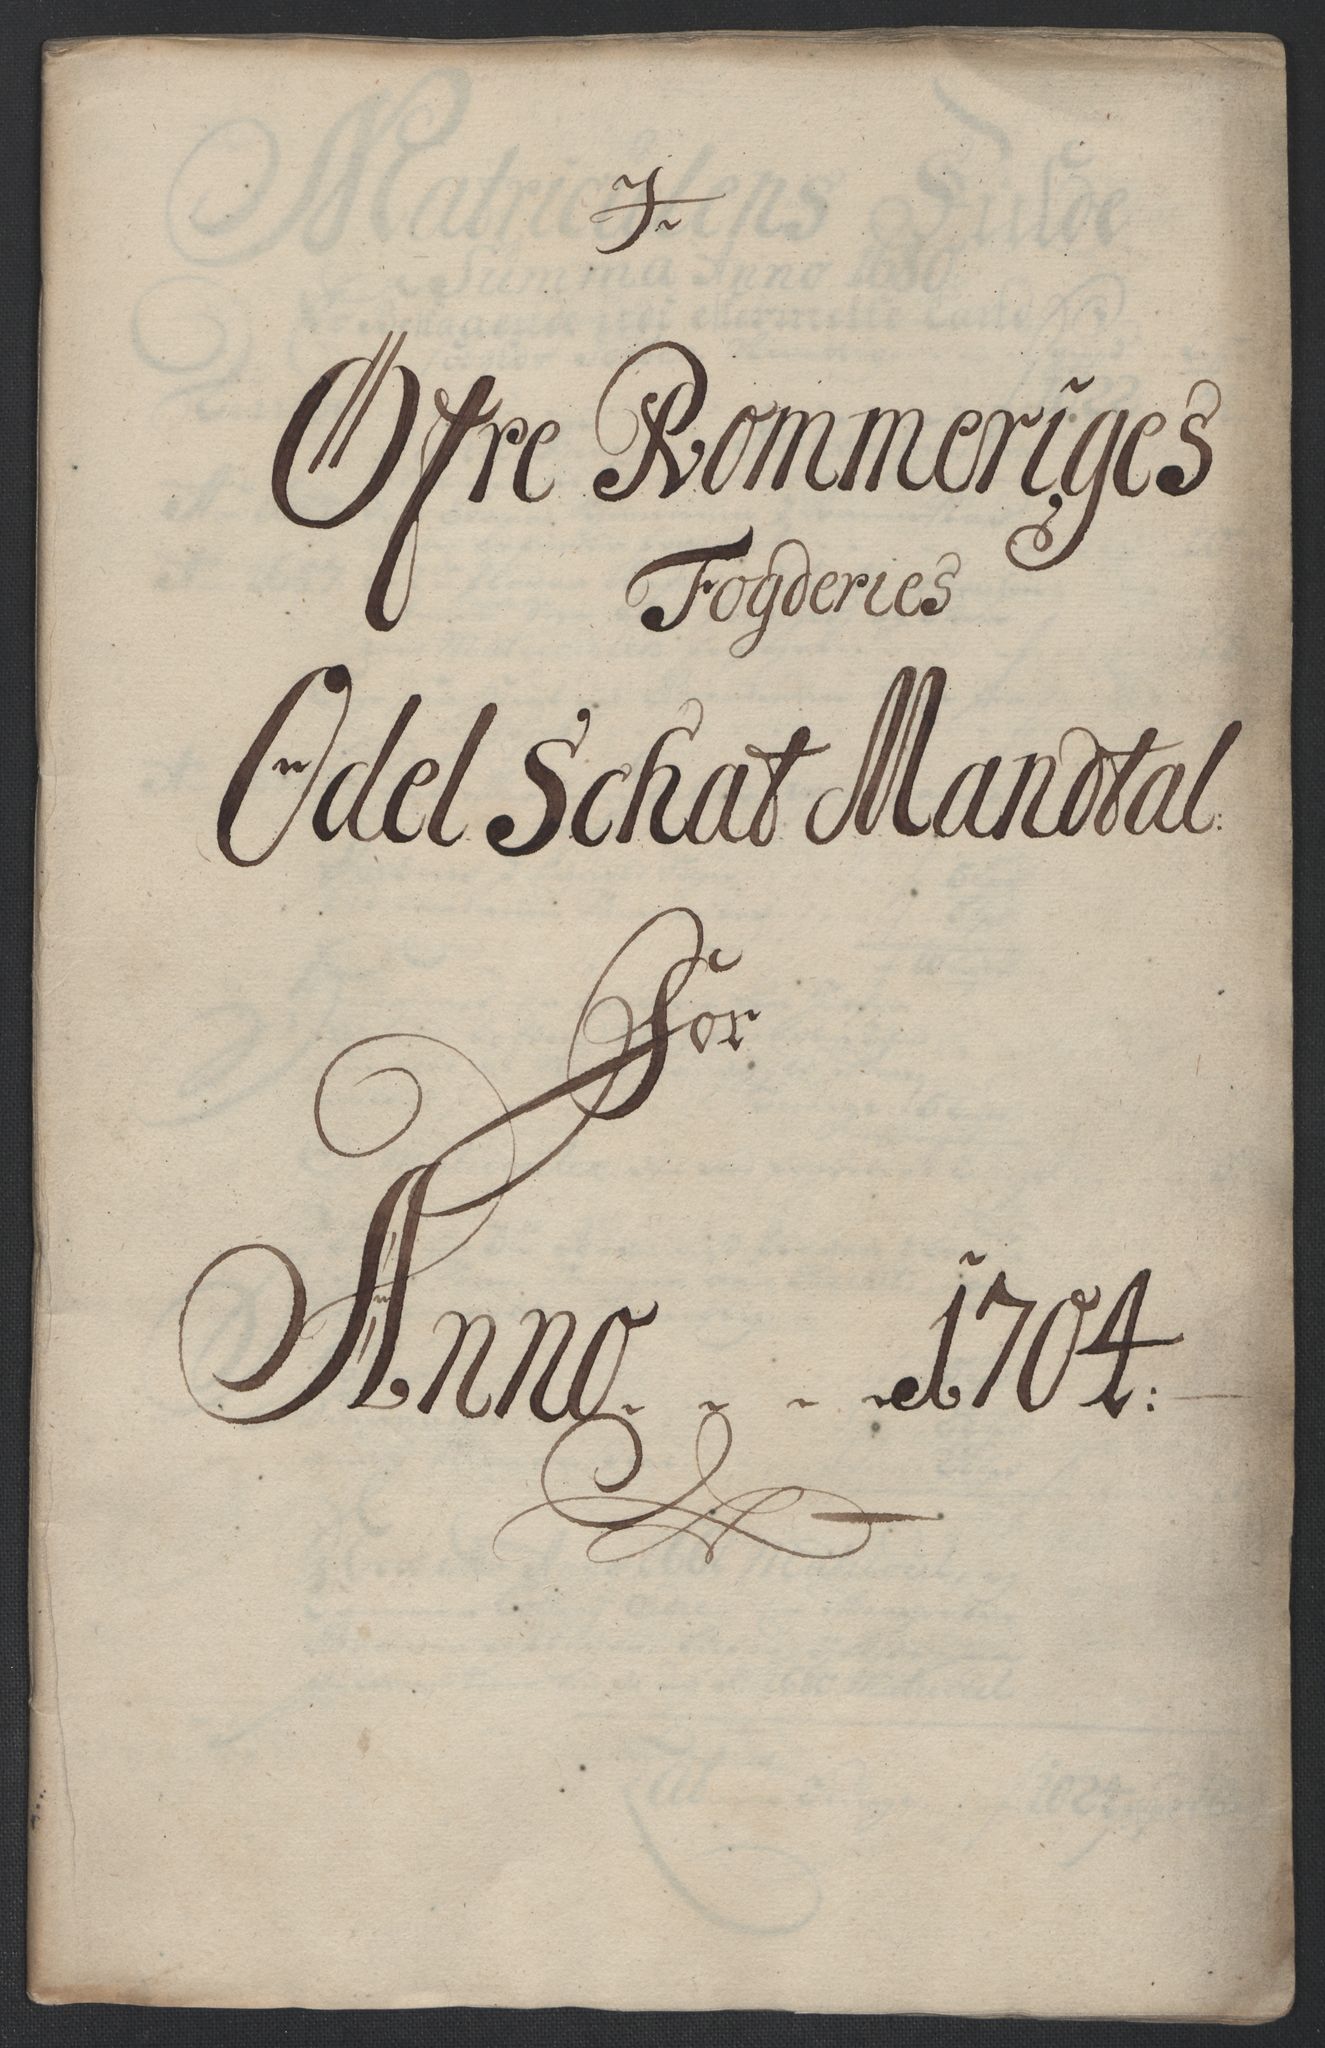 J.
Öfre Rommeriges
Fogderies
Odel Schat Mandtal:
For
Anno . . . 1704: